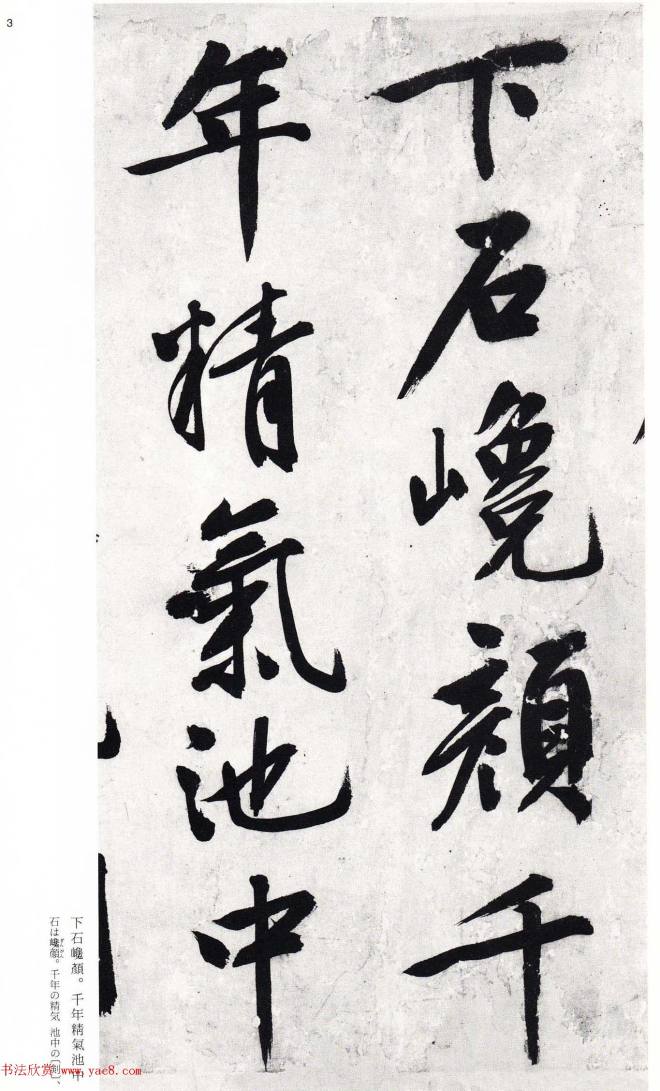 3
下石巉顏千
年精氣池中
下石巉顏。千年精氣池中
石は巉顔。千年の精気 池中の〔剣〕、
ざんがん
书法欣赏 www.yac8.com